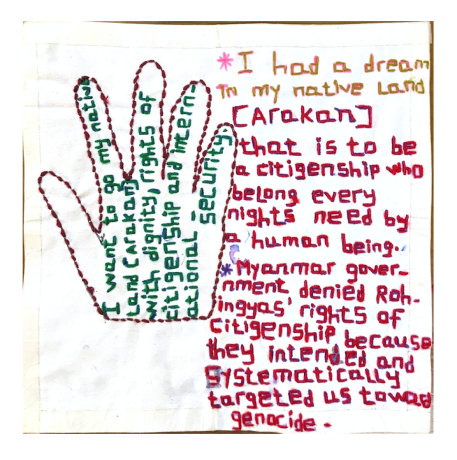 I want to go my native
Land [Arakan]
with dignity, rights of
citigenship and intern-
ational security
*I had a dream
in my native Land
[Arakan]
that is to be
a citigenship who
belong every
nights need by
a human being.
*Myanmar gover-
nment denied Roh-
ingyas' rights of
citigenship because
they intended and
systematically
targeted us toward
genocide.